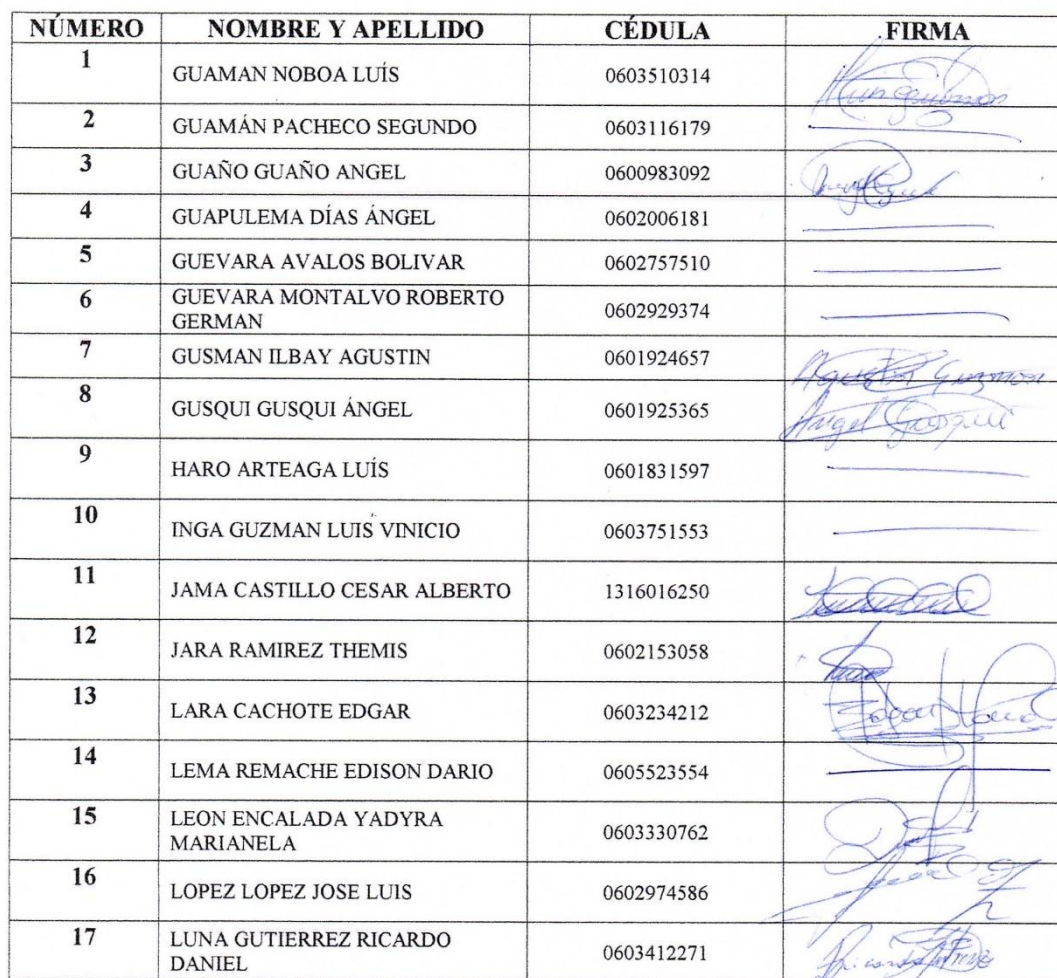 NÚMERO NOMBRE Y APELLIDO CÉDULA FIRMA
1 GUAMAN NOBOA LUÍS 0603510314
2 GUAMÁN PACHECO SEGUNDO 0603116179
3 GUAÑO GUAÑO ANGEL 0600983092
4 GUAPULEMA DÍAS ÁNGEL 0602006181
5 GUEVARA AVALOS BOLIVAR 0602757510
6 GUEVARA MONTALVO ROBERTO
GERMAN 0602929374
7 GUSMAN ILBAY AGUSTIN 0601924657 Agustin Guzman
8 GUSQUI GUSQUI ÁNGEL 0601925365 Angel Gusqui
9 HARO ARTEAGA LUÍS 0601831597
10 INGA GUZMAN LUIS VINICIO 0603751553
11 JAMA CASTILLO CESAR ALBERTO 1316016250
12 JARA RAMIREZ THEMIS 0602153058
13 LARA CACHOTE EDGAR 0603234212 Edgar Lara
14 LEMA REMACHE EDISON DARIO 0605523554
15 LEON ENCALADA YADYRA
MARIANELA 0603330762
16 LOPEZ LOPEZ JOSE LUIS 0602974586
17 LUNA GUTIERREZ RICARDO
DANIEL 0603412271